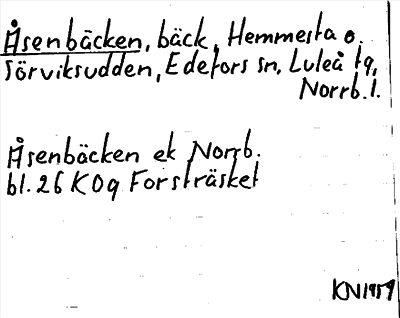 Åsenbäcken, bäck, Hemmesta o.
Sörviksudden, Edefors sn, Luleå tg,
Norrb. l.
Åsenbäcken ek Norrb.
bl. 26 K0q Forsträsket
KN1959